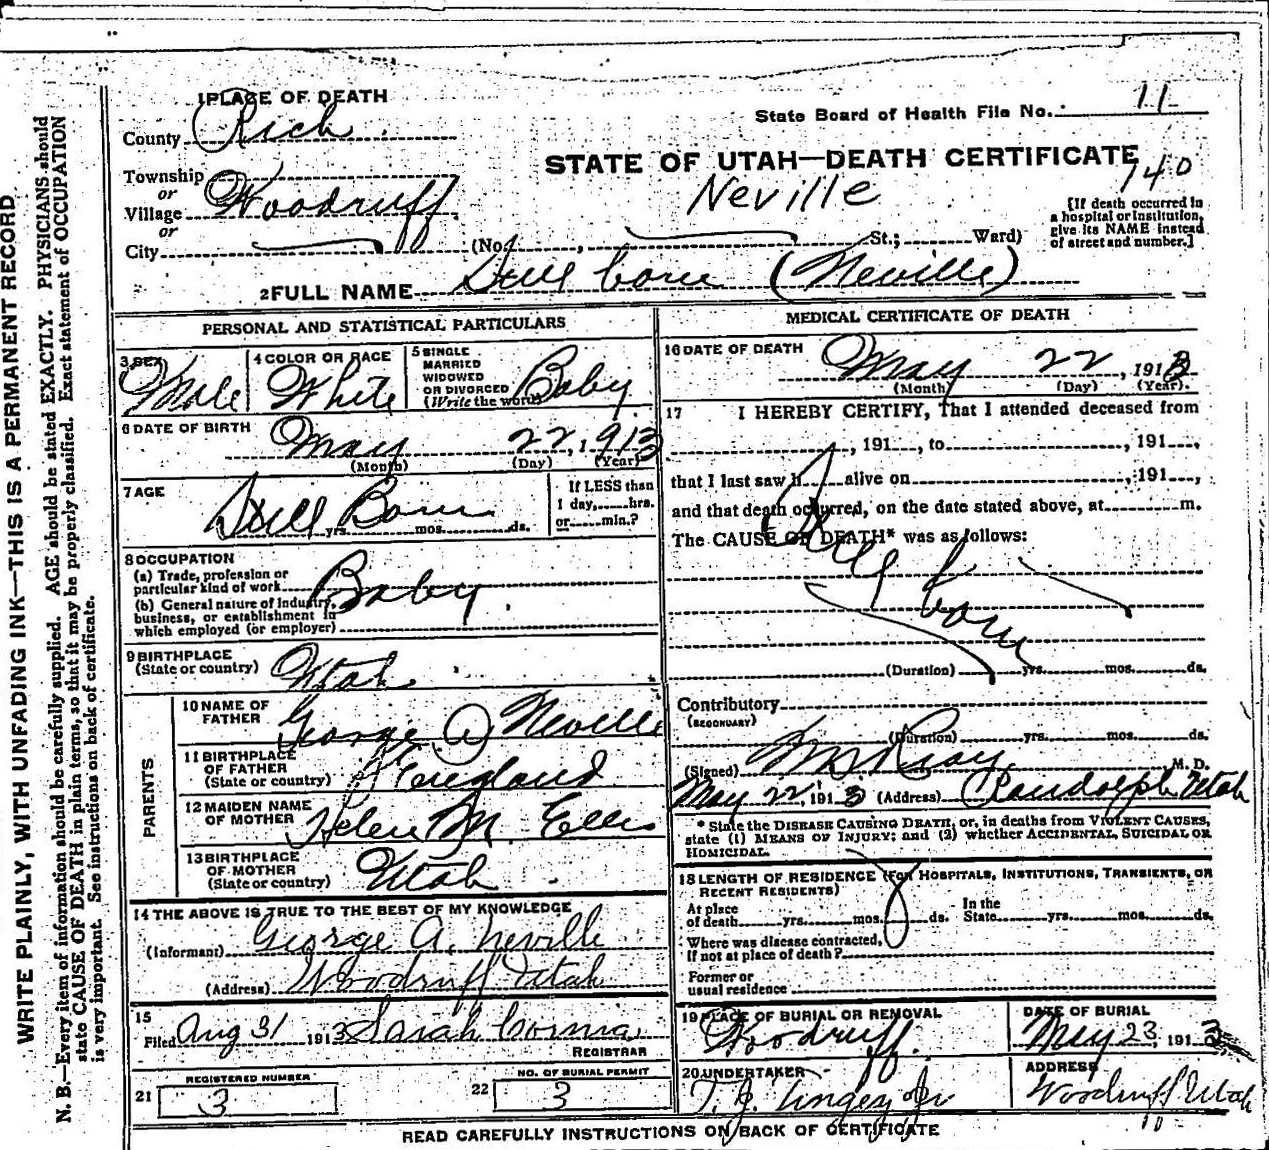 1 PLACE OF DEATH
State Board of Health File No. 11
County Rich
STATE OF UTAH—DEATH CERTIFICATE
740
Township
or
Village Woodruff
or
City
Neville
[If death occurred in
a hospital or institution,
give its NAME instead
of street and number.]
(No. , St.; Ward)
2 FULL NAME Still born (Neville)
PERSONAL AND STATISTICAL PARTICULARS
3 SEX
Male
4 COLOR OR RACE
White
5 SINGLE
MARRIED
WIDOWED
OR DIVORCED
(Write the word)
Baby
6 DATE OF BIRTH
May 22, 1913
(Month) (Day) (Year)
7 AGE
Still Born
yrs. mos. ds.
If LESS than
1 day, hrs.
or min.?
8 OCCUPATION
(a) Trade, profession or
particular kind of work Baby
(b) General nature of industry,
business, or establishment in
which employed (or employer)
9 BIRTHPLACE
(State or country) Utah
PARENTS
10 NAME OF
FATHER George A Neville
11 BIRTHPLACE
OF FATHER
(State or country) England
12 MAIDEN NAME
OF MOTHER Helen M. Ellis
13 BIRTHPLACE
OF MOTHER
(State or country) Utah
14 THE ABOVE IS TRUE TO THE BEST OF MY KNOWLEDGE
(Informant) George A. Neville
(Address) Woodruff Utah
15
Filed Aug 31 1913 Sarah Cornia
REGISTRAR
21 REGISTERED NUMBER
3
22 NO. OF BURIAL PERMIT
3
MEDICAL CERTIFICATE OF DEATH
16 DATE OF DEATH
May 22, 1913
(Month) (Day) (Year).
17 I HEREBY CERTIFY, That I attended deceased from
, 191 , to , 191 ,
that I last saw h alive on , 191 ,
and that death occurred, on the date stated above, at m.
The CAUSE OF DEATH* was as follows:
Still born
(Duration) yrs. mos. ds.
Contributory
(SECONDARY)
(Duration) yrs. mos. ds.
(Signed) Reay M. D.
May 22, 1913 (Address) Randolph Utah
* State the DISEASE CAUSING DEATH, or, in deaths from VIOLENT CAUSES,
state (1) MEANS OF INJURY; and (2) whether ACCIDENTAL, SUICIDAL OR
HOMICIDAL.
18 LENGTH OF RESIDENCE (FOR HOSPITALS, INSTITUTIONS, TRANSIENTS, OR
RECENT RESIDENTS)
At place
of death yrs. mos. ds.
In the
State yrs. mos. ds.
Where was disease contracted,
If not at place of death?
Former or
usual residence
19 PLACE OF BURIAL OR REMOVAL
Woodruff
DATE OF BURIAL
May 23, 1913
20 UNDERTAKER
T. J. Tingey Jr
ADDRESS
Woodruff Utah
READ CAREFULLY INSTRUCTIONS ON BACK OF CERTIFICATE
WRITE PLAINLY, WITH UNFADING INK—THIS IS A PERMANENT RECORD
N. B.—Every item of information should be carefully supplied. AGE should be stated EXACTLY. PHYSICIANS should
state CAUSE OF DEATH in plain terms, so that it may be properly classified. Exact statement of OCCUPATION
is very important. See instructions on back of certificate.